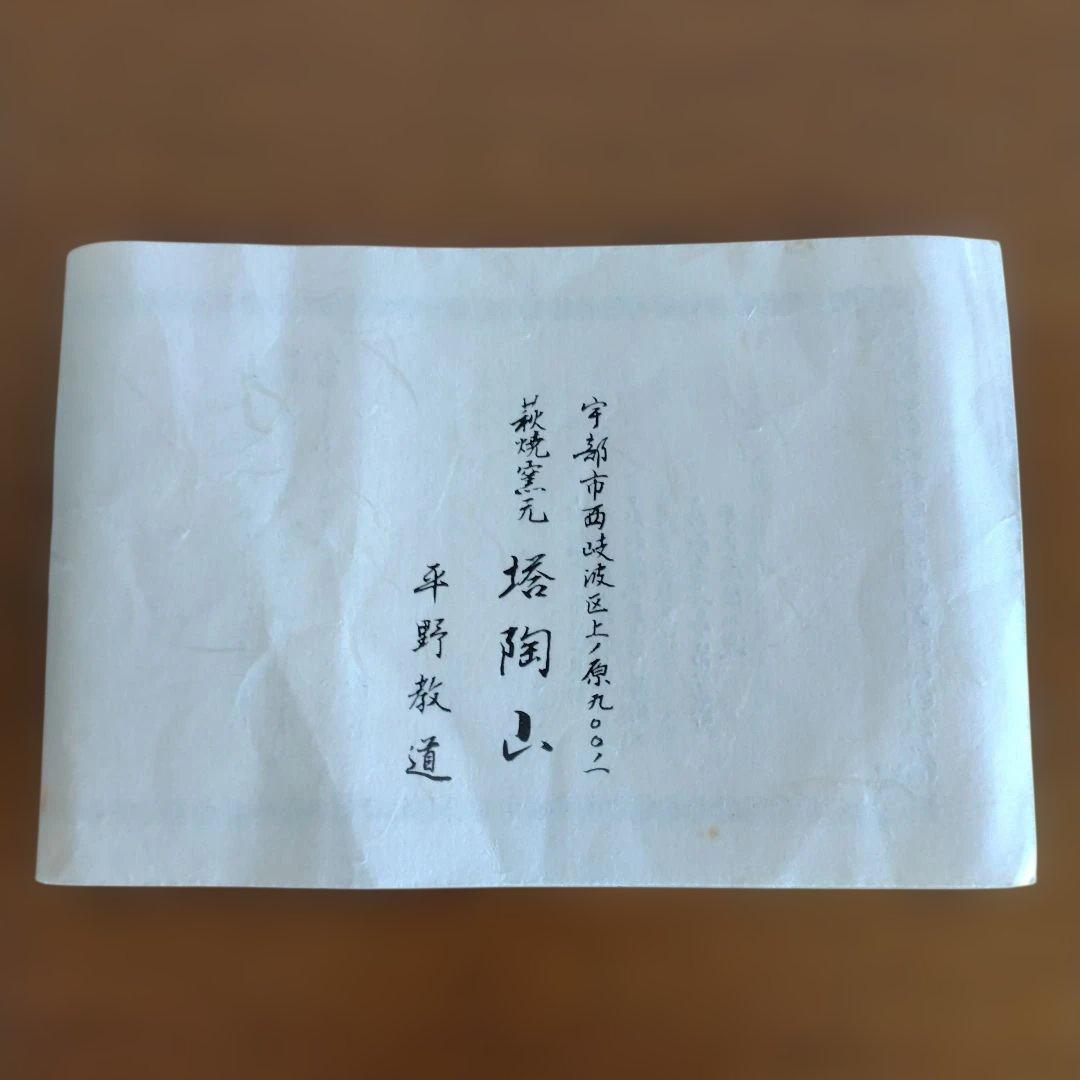 宇部市西岐波区上ノ原九〇〇ノ一
萩焼窯元 塔陶山
平野教道